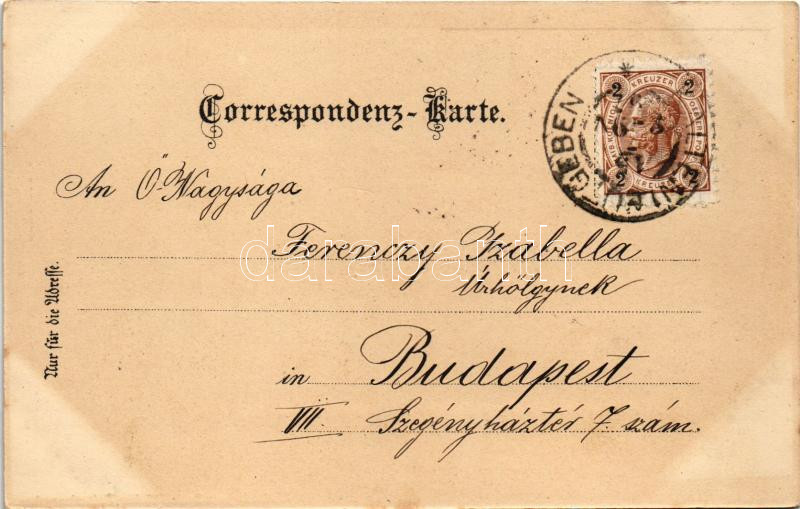 Correspondenz-Karte.
2 KREUZER 2
2 KREUZER 2
GEBEN
An Ő Nagysága
Ferenczy Izabella
Úrhölgynek
darabanth
in Budapest
VII. Szegényháztér 7. szám.
Nur für die Adresse.